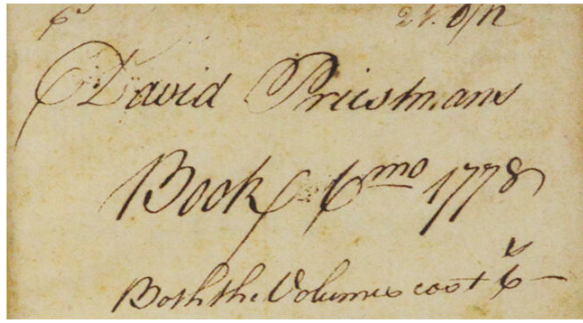 David Priestmans
Book 6mo 1778
Both the Volumes cost